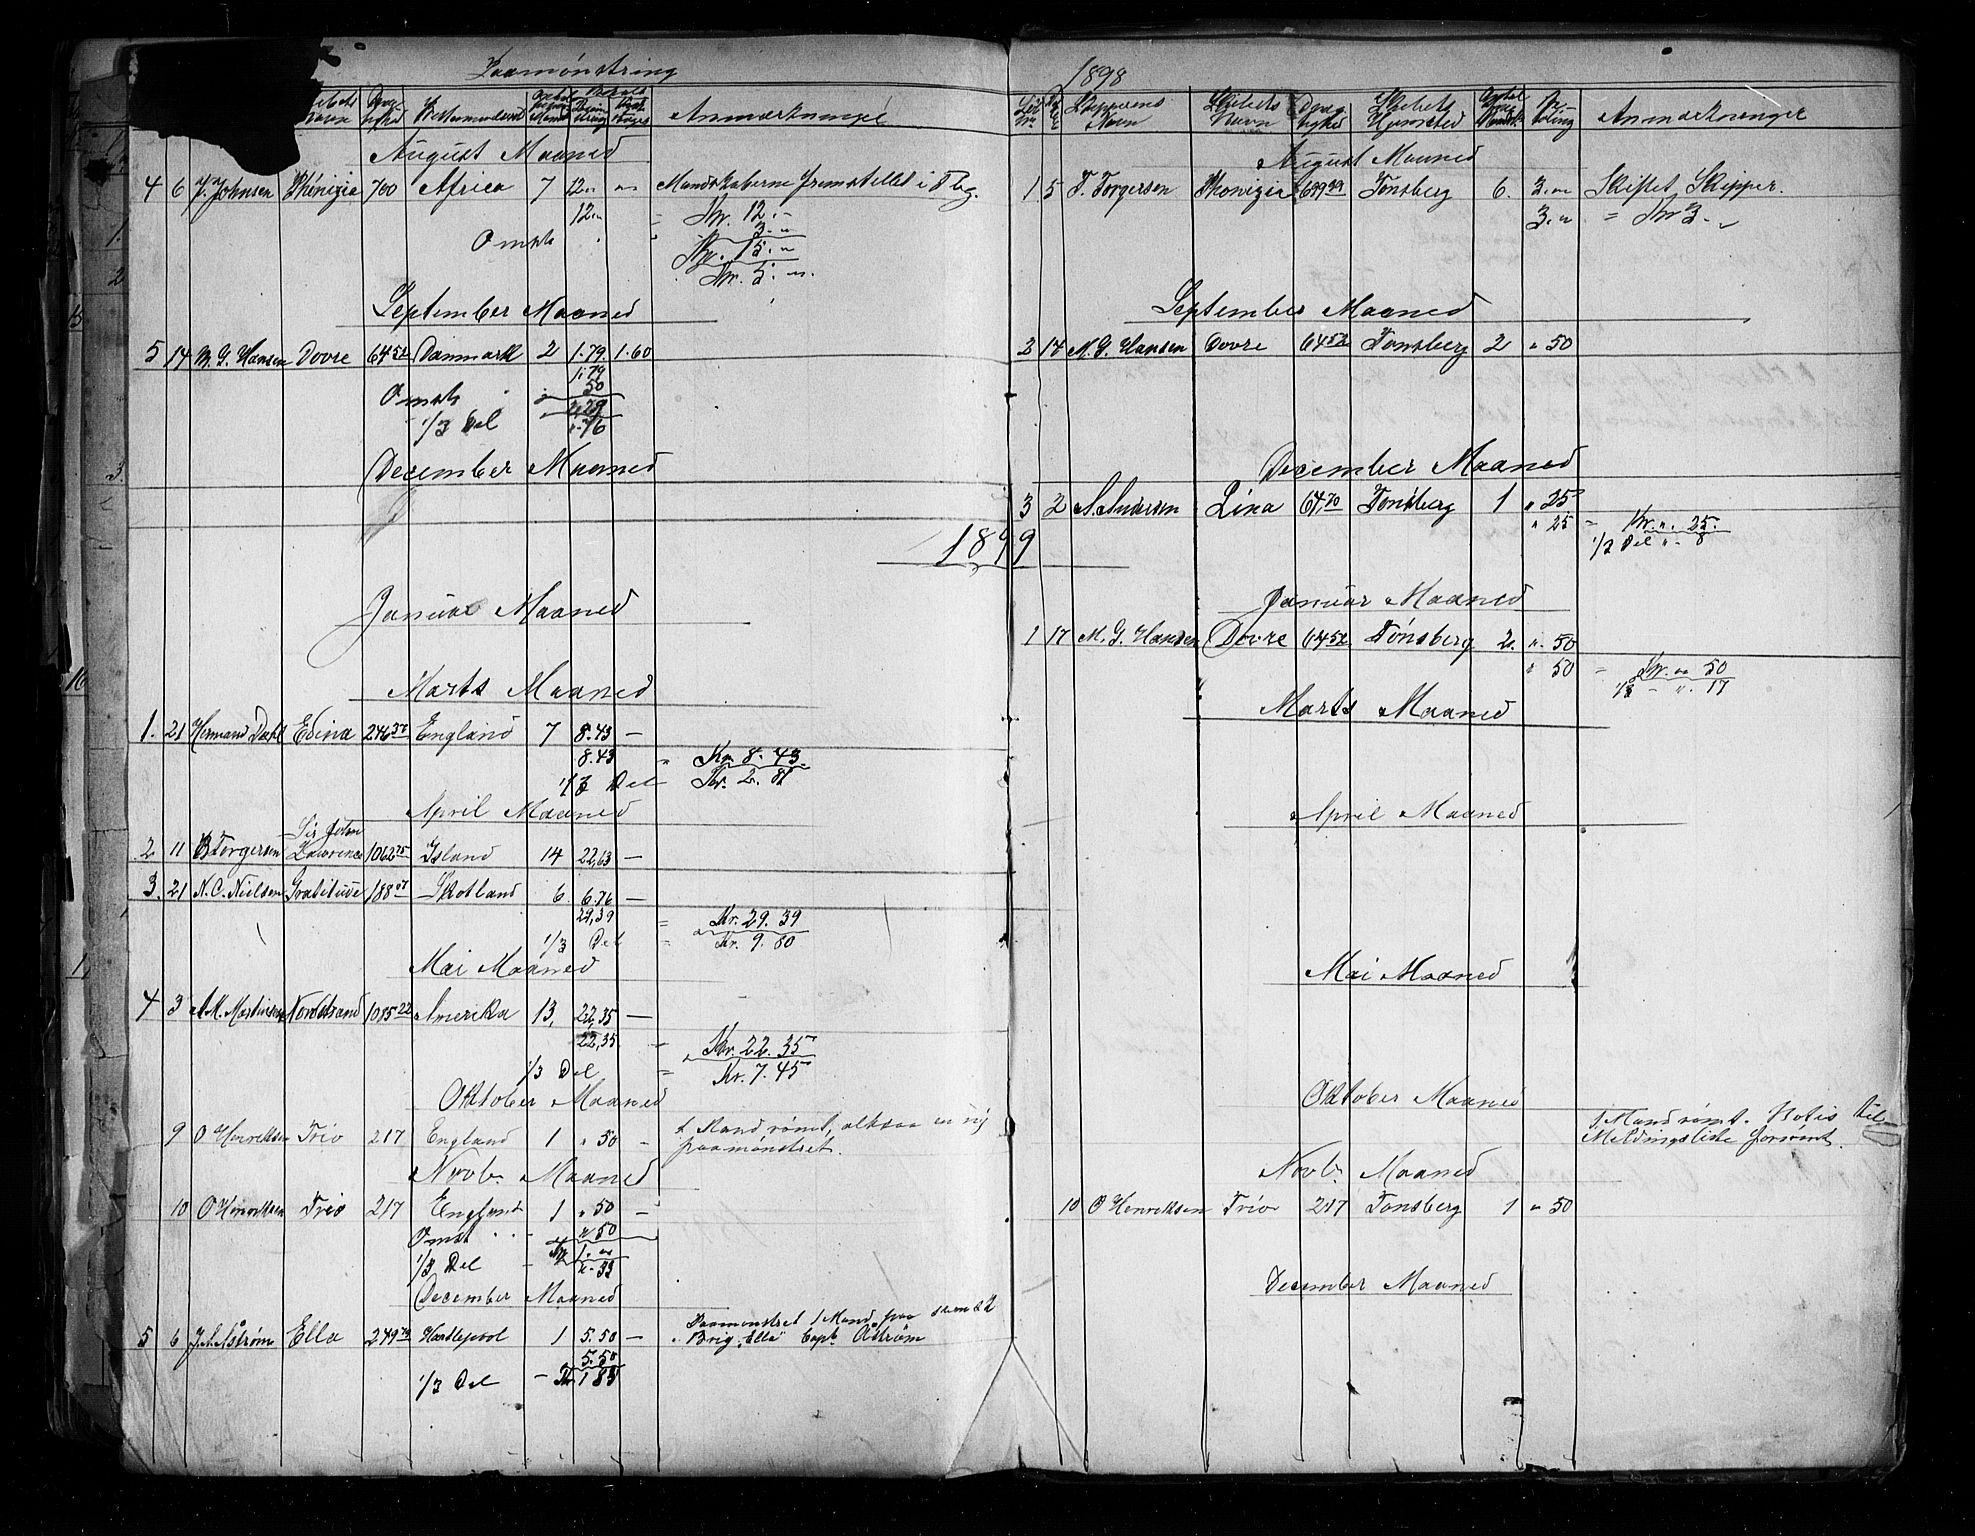 Paamønstring
Anmærkninger
August Maaned
4 6 J. Johnsen Phenizie 700 Africa 7 12 „ „ Mandskaberne fremstillet i Tbg.
12 „ = Kr. 12. -
3. „
Kr. 15. „
Kr. 5. „
September Maaned
5 14 M. G. Hansen Dovre 64 52 Danmark 2 1.79. 1.60
1.79
50
2,29
1/3 Del „.76
December Maaned
1899
Januar Maaned
Marts Maaned
1. 21 Hermand Edina 246 37 England 7 8.43 —
8.43 „ Kr. 8. 43.
1/3 Del Kr. 2. 81
April Maaned
Sir John
2 11 B Torgersen Lawrence 1062 75 Island 14 22,63 —
3. 21 N. C. Nielsen Gratitude 188 07 Skotland 6 6.76 —
29,39 = Kr. 29. 39
1/3 Del = Kr. 9. 80
Mai Maaned
4 3 A M. Martinsen Nordstrand 1015 22 Amerika 13, 22,35 —
22,35 = Kr. 22. 35
1/3 Del = Kr. 7. 45
Oktober Maaned
9 O Henriksen Trio 217 England 1 „ 50 — 1 Mand rømt, altsaa en ny
paamønstret.
Novb. Maaned
10 O Henriksen Trio 217 England 1 „ 50 —
„ 50
Kr 1. „
1/3 Del „. 33
December Maaned
5 6 J. A. Åstrøm Ella 249 Hartlepool 1 5.50 — Paamønstret 1 Mand paa svensk
Brig „Ella" Capt. Åstrøm
5.50
1/3 Del — Kr 1 83
1898
Skipperens Navn Skibets Navn Skibets Hjemsted Anmærkninger
August Maaned
1 5 T. Torgersen Phonizie 689 39 Tønsberg 6. 3. „ Skiftet Skipper.
3. „ = Kr 3. „
September Maaned
2 14 M. G. Hansen Dovre 64 52 Tønsberg 2 „ 50
December Maaned
3 2 A. Andersen Lina 64,70 Tønsberg 1 „ 25
„ 25 = Kr. „. 25.
1/3 Del „. 8
Januar Maaned
1 17 M. G. Hansen Dovre 64 52 Tønsberg 2. „. 50
„ 50 = Kr. „ 50
1/3 - „. 17
Marts Maaned
April Maaned
Mai Maaned
Oktober Maaned
1 Mand rømt. Notis til
Meldingsliste
Novb. Maaned
10 O Henriksen Trio 217 Tønsberg 1 „ 50
December Maaned